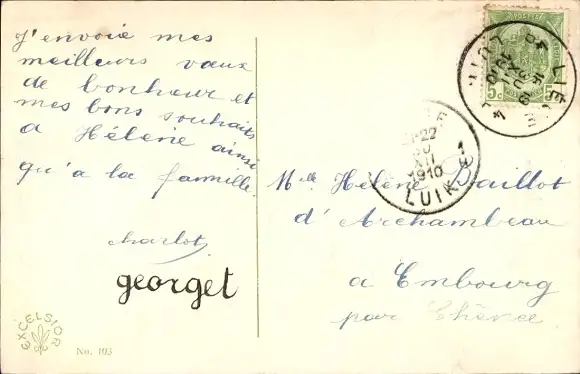 J'envoie mes
meilleurs vœux
de bonheur et
mes bons souhaits
a Hélène ainsi
qu'a la famille.
charlot
georget
EXCELSIOR
No. 103
5c
LIÉGE
1910
LUIK
22
XII
1910
LUIK
Melle Hélène Baillot
d'Archambeau
a Embourg
par Chênée.